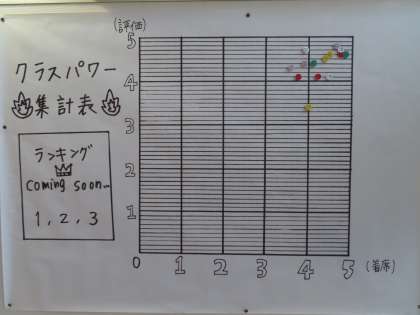 クラスパワー
集計表
ランキング
coming soon...
1, 2, 3
(評価)
5
4
3
2
1
0
1 2 3 4 5
(着席)